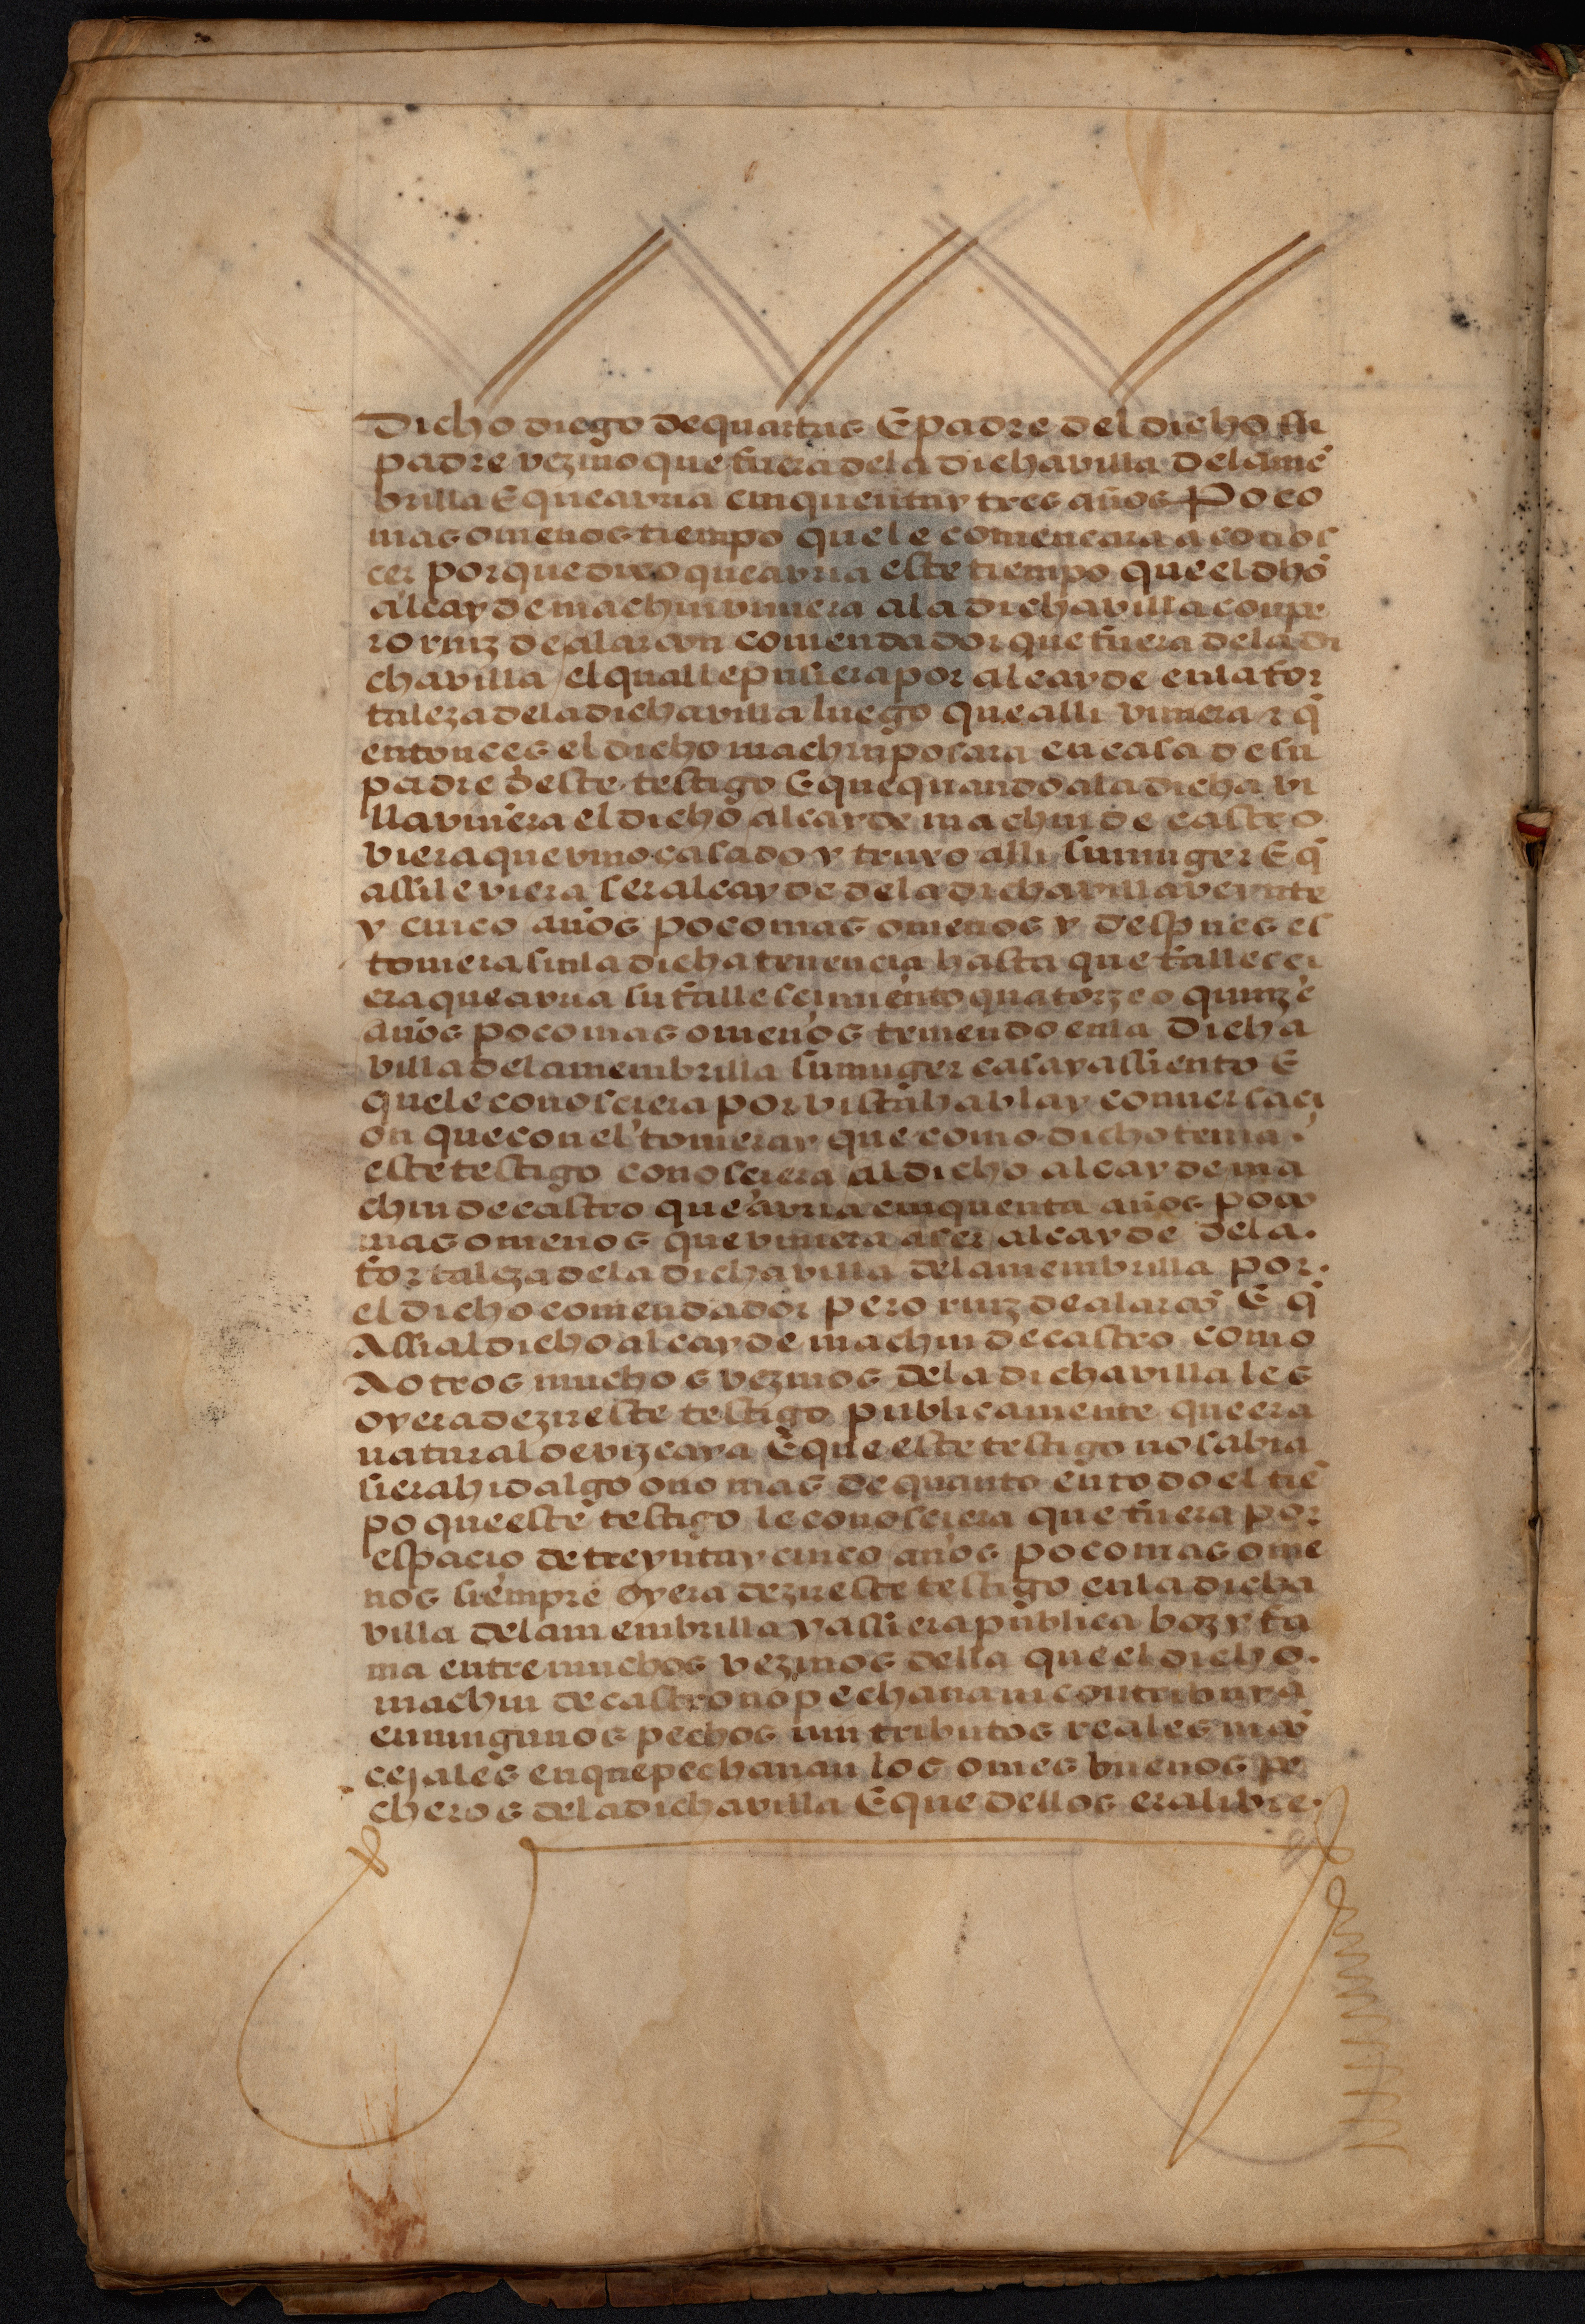 Dicho diego de quartas E padre del dicho su
padre vezino que fuera de la dicha villa de la mē
brilla E que avria cinquentay tres años Poco
mas o menos tiempo que le comencara a conos
cer porque dixo que avria este tiempo que el dhō
alcayde machin viniera a la dicha villa con pe
ro ruiz de alarcon comendador que fuera de la di
cha villa / el qual le pusiera por alcayde en la for
taleza de la dicha villa luego que alli viniera y q̄
entonces el dicho machin posara en casa de su
padre deste testigo E que quando a la dicha vi
lla viniera el dicho alcayde machin de castro
viera que vino casado y truxo alli su muger E q̄
assi le viera ser alcayde de la dicha villa veynte
y cinco años poco mas o menos y despues es
toviera sin la dicha tenencia hasta que fallesci
era que avria su fallescimiento quatorze o quinze
años poco mas o menos teniendo en la Dicha
villa de la membrilla su muger casa y assiento E
que le conosciera por vista habla y conversaci
on que con el toviera y que como dicho tenia
este testigo conosciera al dicho alcayde ma
chin de castro que avria cinquenta años poco
mas o menos que viniera a ser alcayde de la
fortaleza de la dicha villa de la membrilla por
el dicho comendador pero ruiz de alarcō E q̄
Assi al dicho alcayde machin de castro como
A otros muchos vezinos de la dicha villa les
oyera dezir este testigo publicamente que era
natural de vizcaya E que este testigo no sabia
si era hidalgo o no mas de quanto en todo el tiē
po que este testigo le conosciera que fuera por
espacio de treyntay cinco años poco mas o me
nos siempre oyera dezir este testigo en la dicha
villa de la membrilla y assi era publica boz y fa
ma entre muchos vezinos della que el dicho
machin de castro no pechava ni contribuya
en ningunos pechos nin tributos reales ni cō
cejales en que pechavan los omes buenos pe
cheros de la dicha villa E que dellos era libre